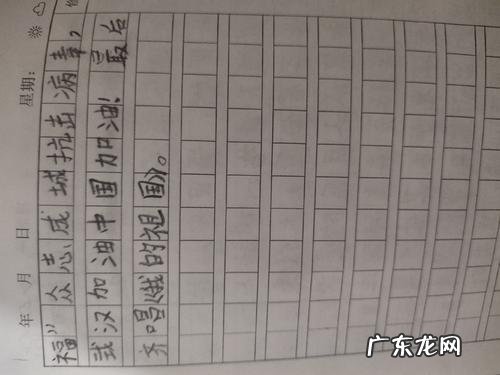 年 月 日 星期:
福”众志成城抗击病毒,
武汉加油中国加油!最后
齐唱《我的祖国》。
广东龙网